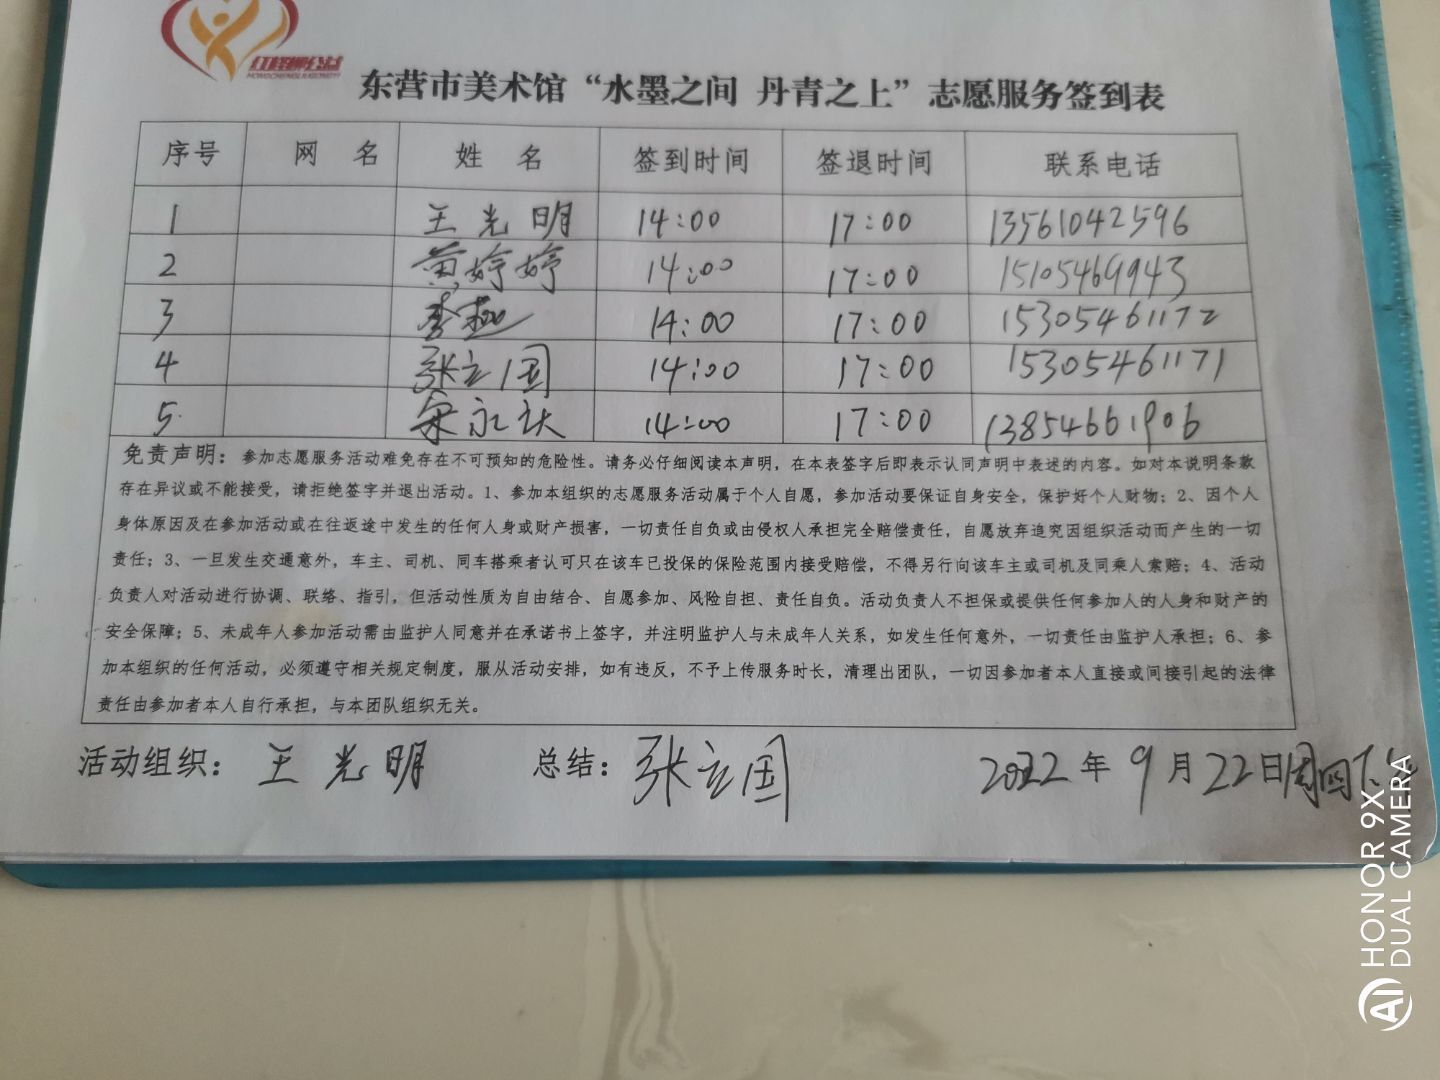 红柽柳公益
东营市美术馆“水墨之间 丹青之上”志愿服务签到表
序号 网 名 姓 名 签到时间 签退时间 联系电话
1 王光明 14:00 17:00 13561042596
2 黄婷婷 14:00 17:00 15105469943
3 李 14:00 17:00 15305461172
4 张立国 14:00 17:00 15305461171
5 宋永 14:00 17:00 13854661906
免责声明：参加志愿服务活动难免存在不可预知的危险性。请务必仔细阅读本声明，在本表签字后即表示认同声明中表述的内容。如对本说明条款
存在异议或不能接受，请拒绝签字并退出活动。1、参加本组织的志愿服务活动属于个人自愿，参加活动要保证自身安全，保护好个人财物；2、因个人
身体原因及在参加活动或在往返途中发生的任何人身或财产损害，一切责任自负或由侵权人承担完全赔偿责任，自愿放弃追究因组织活动而产生的一切
责任；3、一旦发生交通意外，车主、司机、同车搭乘者认可只在该车已投保的保险范围内接受赔偿，不得另行向该车主或司机及同乘人索赔；4、活动
负责人对活动进行协调、联络、指引，但活动性质为自由结合、自愿参加、风险自担、责任自负。活动负责人不担保或提供任何参加人的人身和财产的
安全保障；5、未成年人参加活动需由监护人同意并在承诺书上签字，并注明监护人与未成年人关系，如发生任何意外，一切责任由监护人承担；6、参
加本组织的任何活动，必须遵守相关规定制度，服从活动安排，如有违反，不予上传服务时长，清理出团队，一切因参加者本人直接或间接引起的法律
责任由参加者本人自行承担，与本团队组织无关。
活动组织：王光明 总结：张立国 2022年9月22日周四下午
HONOR 9X
DUAL CAMERA